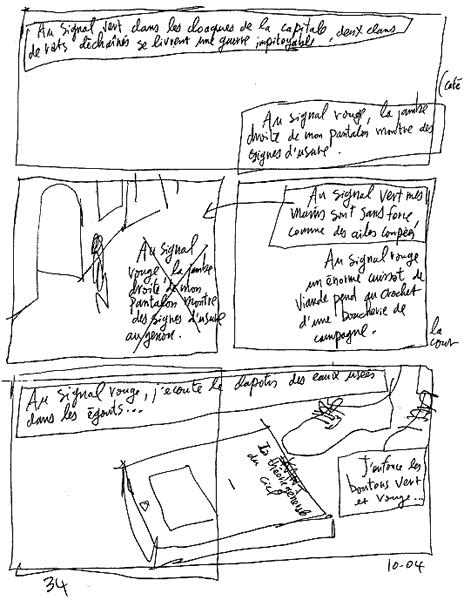 Au signal vert dans les cloaques de la capitale, deux clans
de rats déchaînés se livrent une guerre impitoyable.
Au signal rouge, la jambe
droite de mon pantalon montre des
signes d'usure.
(coté
Au signal
rouge, la jambe
droite de mon
pantalon montre
des signes d'usure
au genou.
Au signal vert mes
mains sont sans force,
comme des ailes coupées
Au signal rouge
un énorme cuissot de
viande pend au crochet
d'une boucherie de
campagne.
la
cour
Au signal rouge, j'ecoute le clapotis des eaux usées
dans les égouts...
La théorie générale
du
J'enfonce les
boutons vert
et rouge...
34
10-04